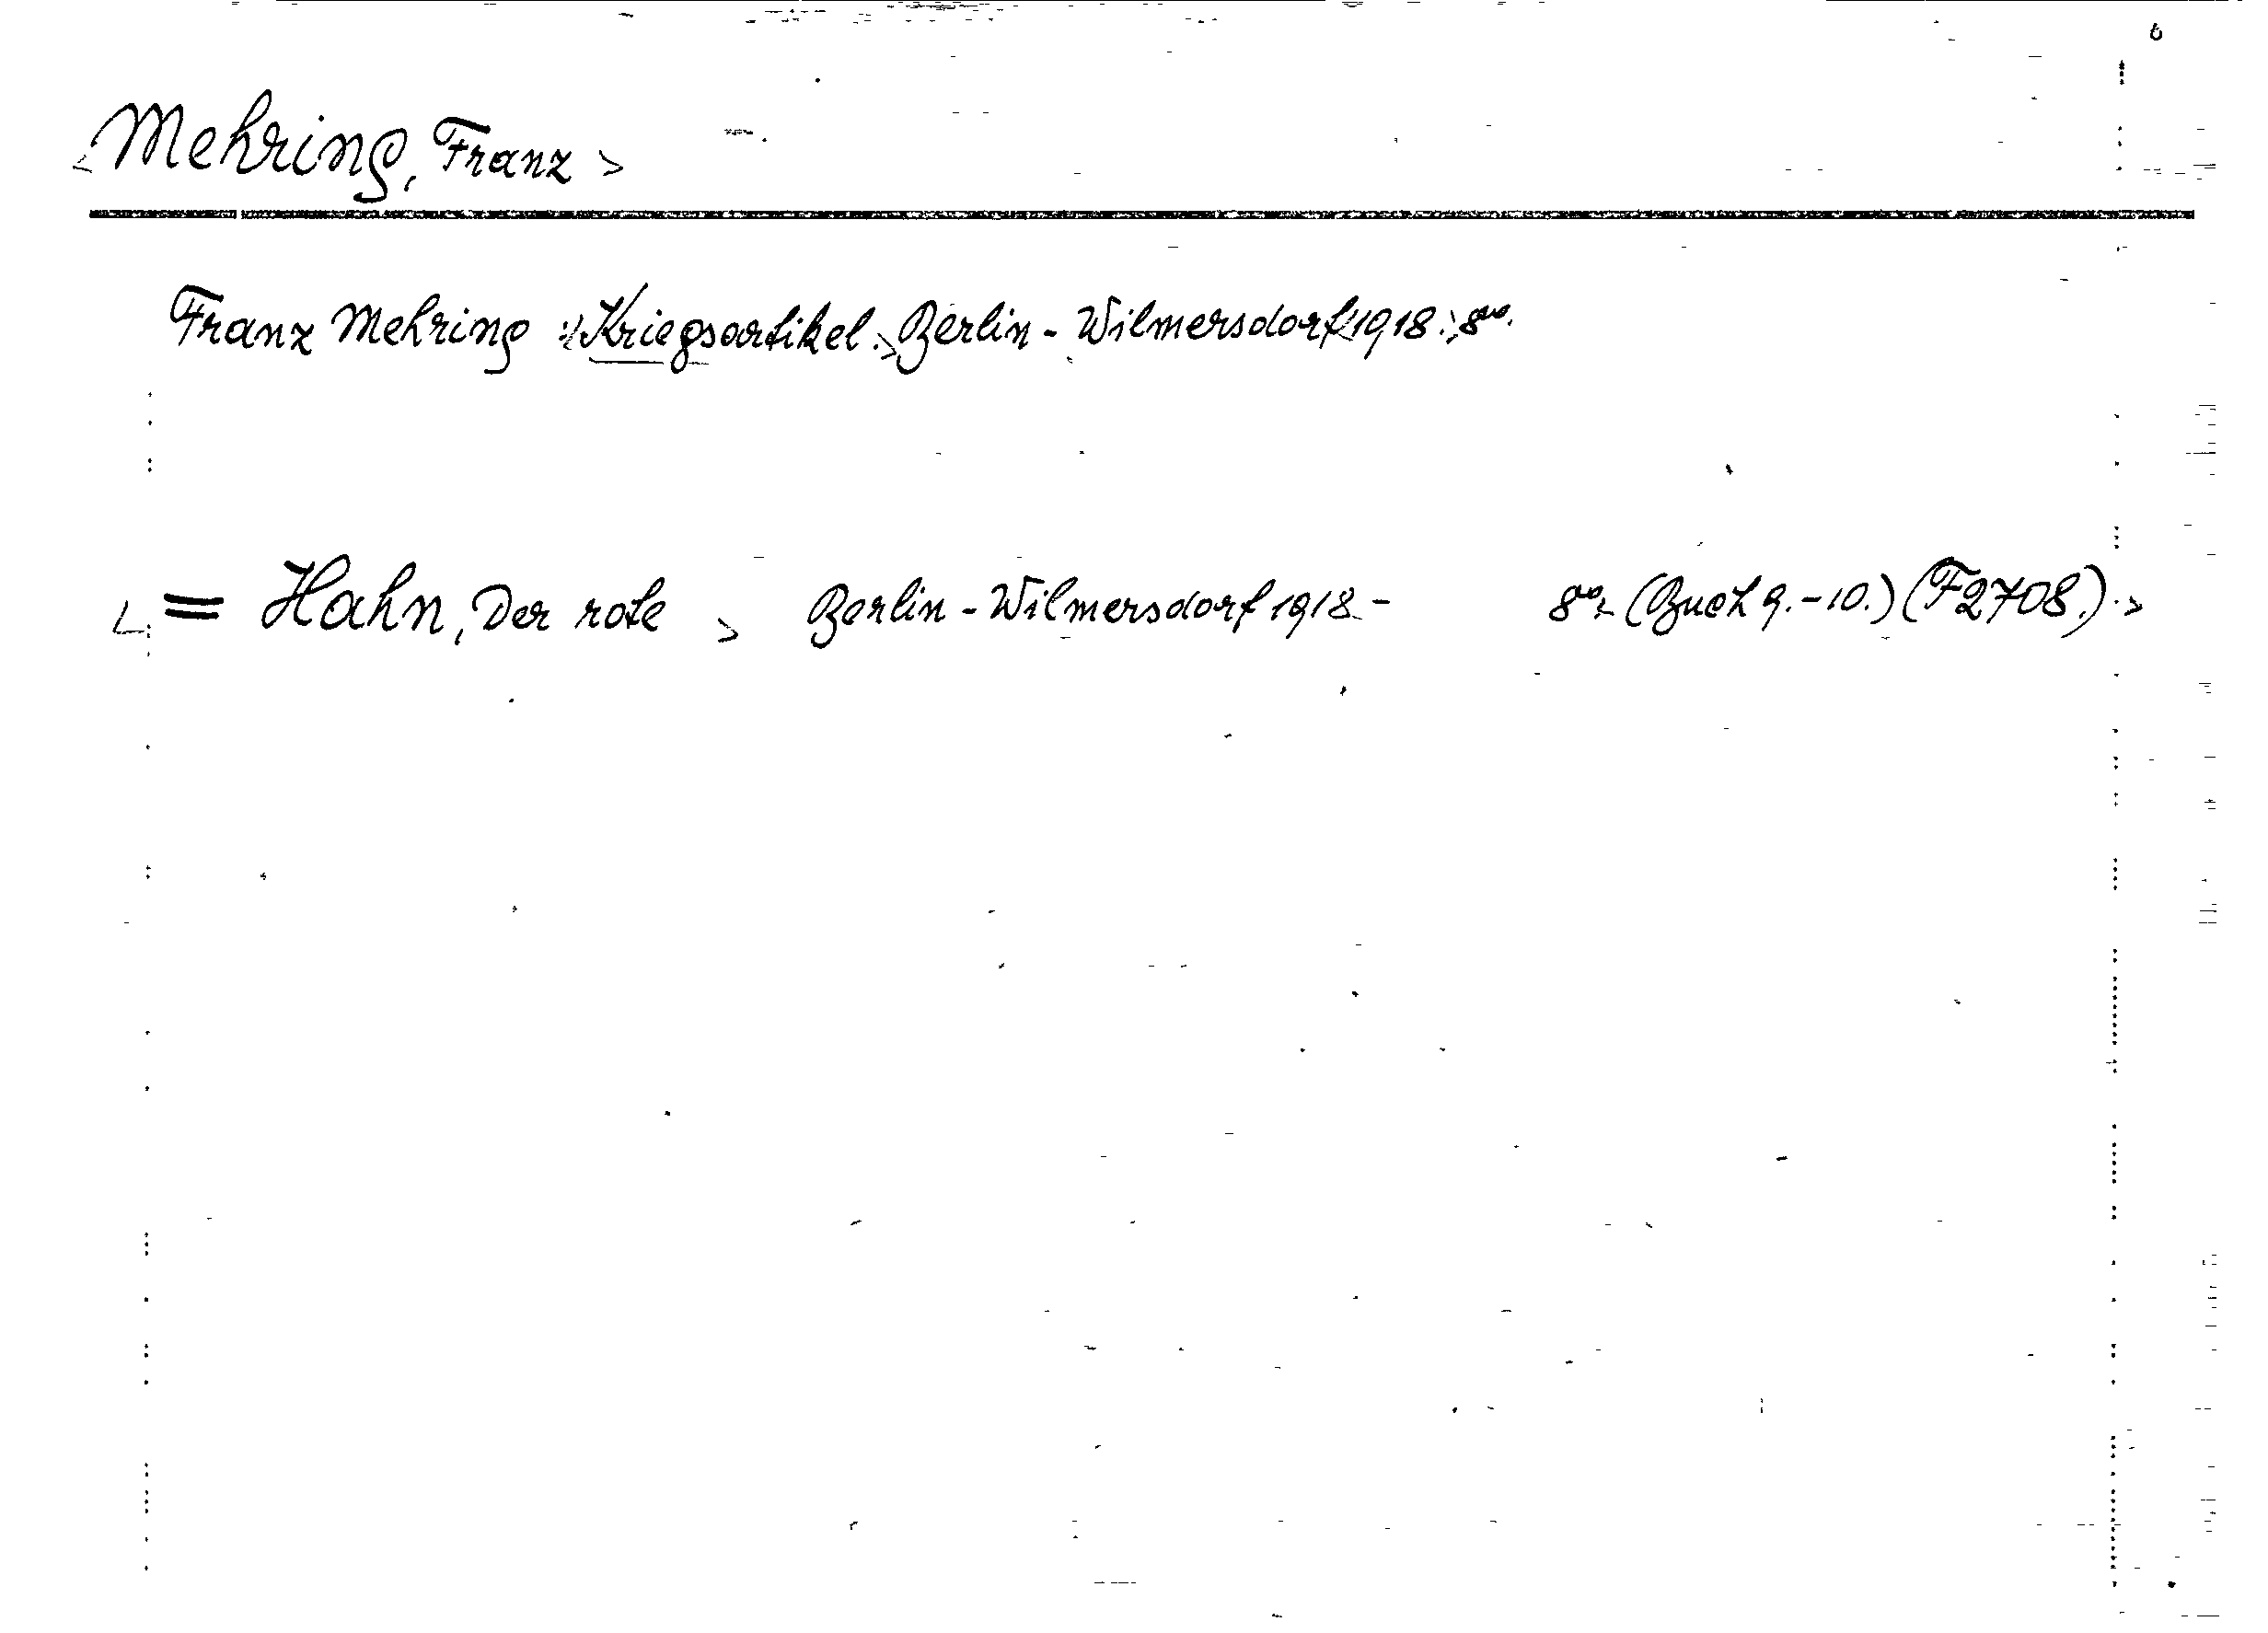 <Mehring, Franz>
Franz Mehring :<Kriegsartikel.> Berlin-Wilmersdorf 1918.> 8vo.
<= Hahn, Der rote > Berlin-Wilmersdorf 1918- 8vo. (Buch 9.-10.) (F2708.).>